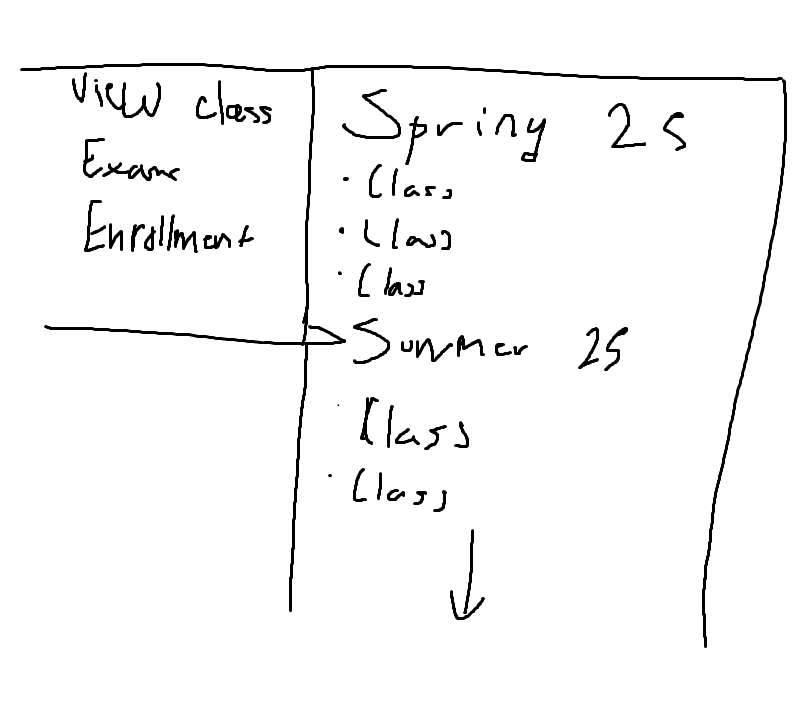 View class
Exams
Enrollment
Spring 25
• Class
• Class
• Class
Summer 25
• Class
• Class